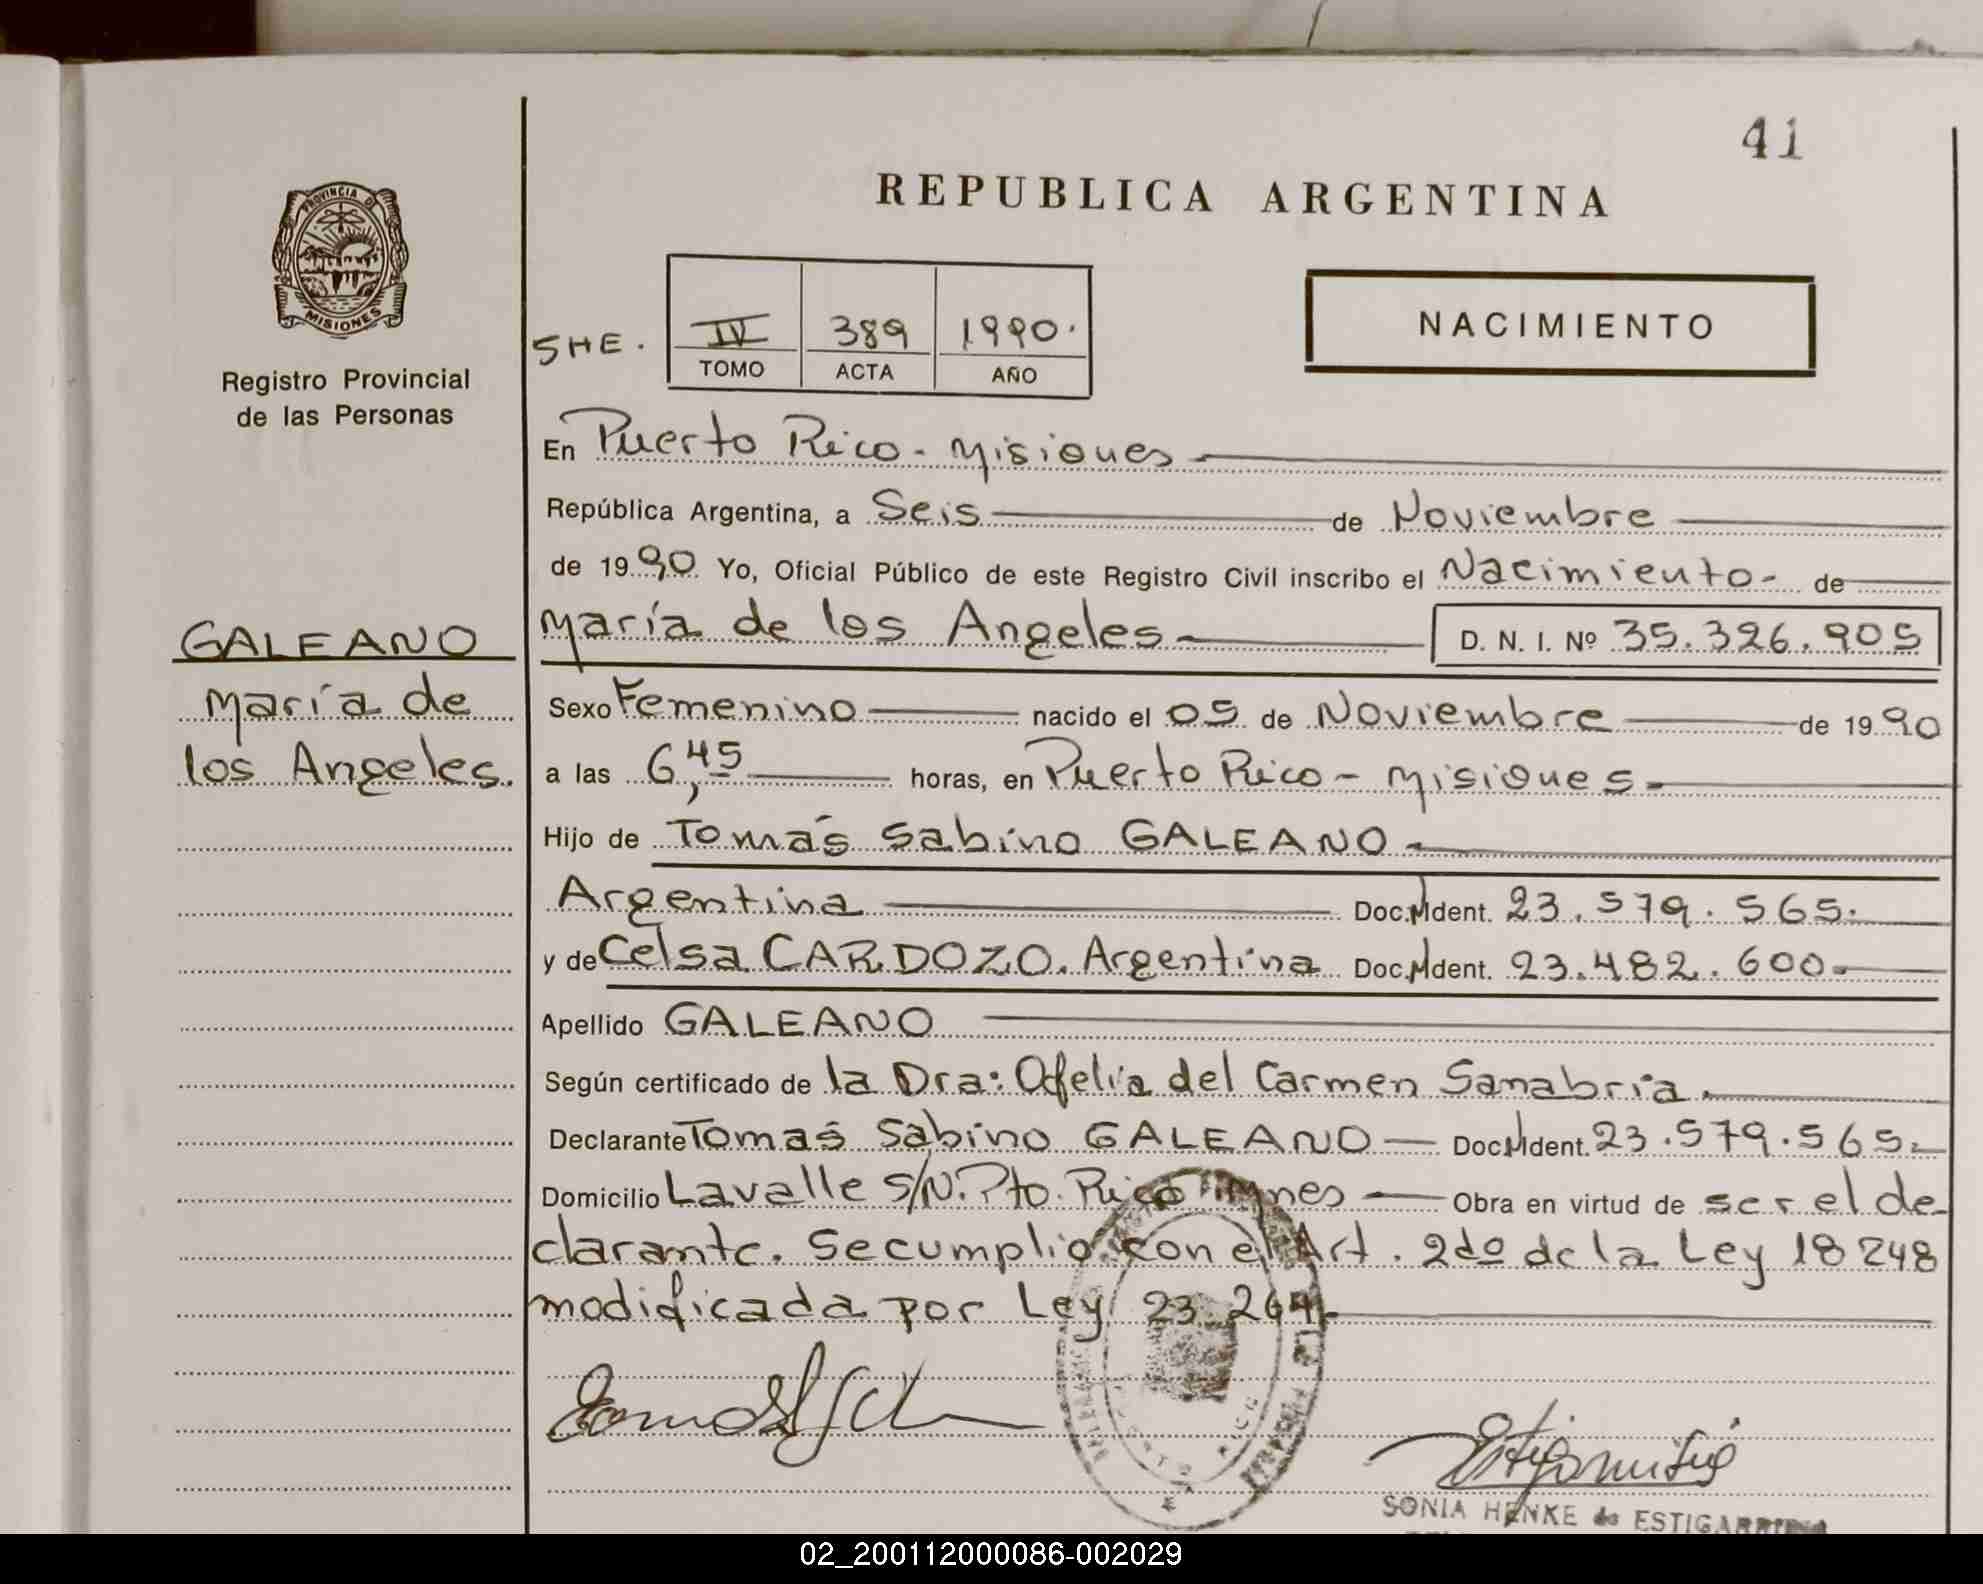 41
REPUBLICA ARGENTINA
PROVINCIA DE
MISIONES
Registro Provincial
de las Personas
SHE.
IV 389 1990.
TOMO ACTA AÑO
NACIMIENTO
En Puerto Rico - Misiones
República Argentina, a Seis de Noviembre
de 1990 Yo, Oficial Público de este Registro Civil inscribo el Nacimiento- de
María de los Angeles D. N. I. Nº 35.326.905
GALEANO
María de
los Angeles.
Sexo Femenino nacido el 05 de Noviembre de 1990
a las 6,45 horas, en Puerto Rico - Misiones
Hijo de Tomás Sabino GALEANO
Argentina Doc. Ident. 23.579.565.
y de Celsa CARDOZO. Argentina Doc. Ident. 23.482.600
Apellido GALEANO
Según certificado de la Dra: Ofelia del Carmen Sanabria.
Declarante Tomás Sabino GALEANO Doc. Ident. 23.579.565
Domicilio Lavalle S/N. Pto. Rico Mnes Obra en virtud de ser el de
clarante. Se cumplio con el Art. 2do de la Ley 18248
modificada por Ley 23.264
SONIA HENKE de ESTIGARRIBIA
02_200112000086-002029